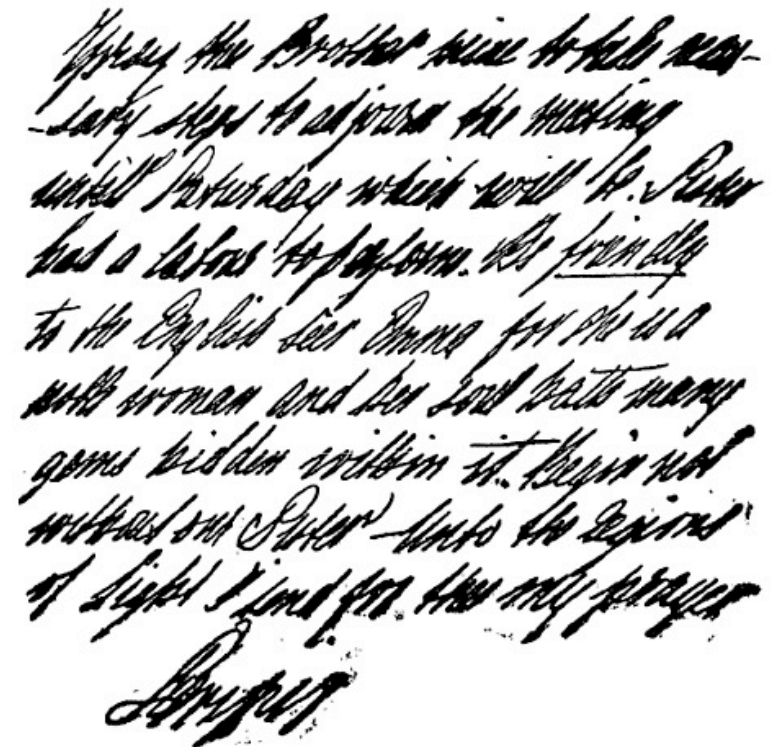 I pray thee Brother mine to take neces-
-sary steps to adjourn the meeting
untill Saturday which will be. Sister
has a labour to perform. Be friendly
to the English seer Emma for she is a
noble woman and her soul hath many
gems hidden within it. Begin not
without our Sister — Unto the regions
of Light I send for thee my prayer
Serapis